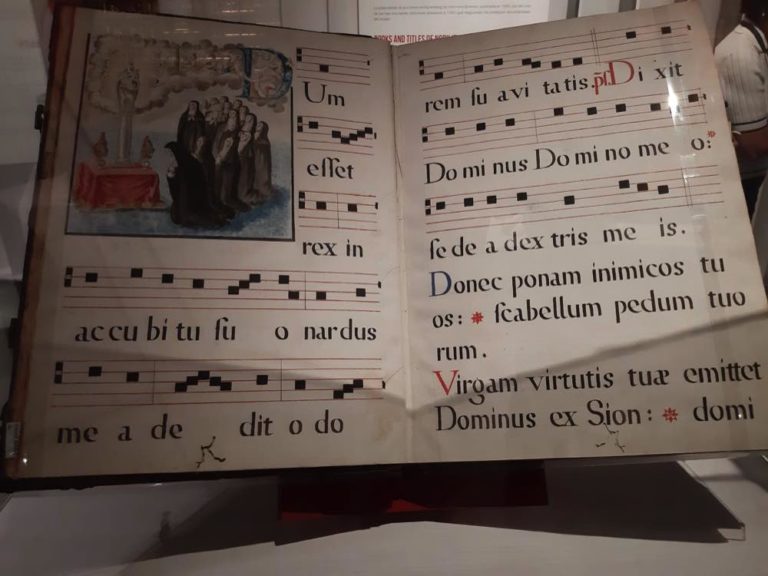 BOOKS AND TITLES OF
DUm
eſſet
rex in
ac cu bi tu ſu o nardus
me a de dit o do
rem ſu avi ta tis. pſ. Di xit
Do mi nus Do mi no me o: *
ſe de a dex tris me is.
Donec ponam inimicos tu
os: * ſcabellum pedum tuo
rum.
Virgam virtutis tuæ emittet
Dominus ex Sion: * domi